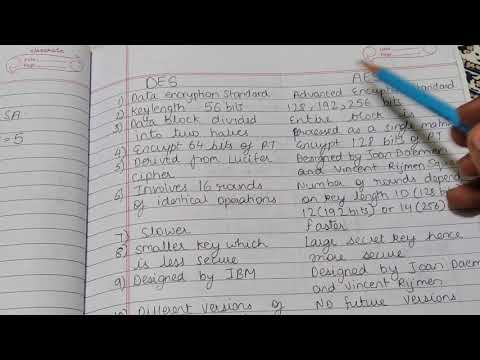 classmate
Date
Page
SA
= 5
DES AES
1) Data encryption standard Advanced Encryption Standard
2) Key length 56 bits 128, 192, 256 bits
3) Data block divided Entire block is
into two halves processed as a single matrix
4) Encrypt 64 bits of P.T Encrypt 128 bits of P.T
5) Derived from Lucifer Designed by Joan Daemen
cipher and Vincent Rijmen
6) Involves 16 rounds Number of rounds depend
of identical operations on key length 10 (128 bits
12 (192 bits) or 14 (256)
7) Slower Faster
8) Smaller key which Large secret key hence
is less secure more secure
9) Designed by IBM Designed by Joan Daem
and Vincent Rijmen
10) Different versions of No future versions